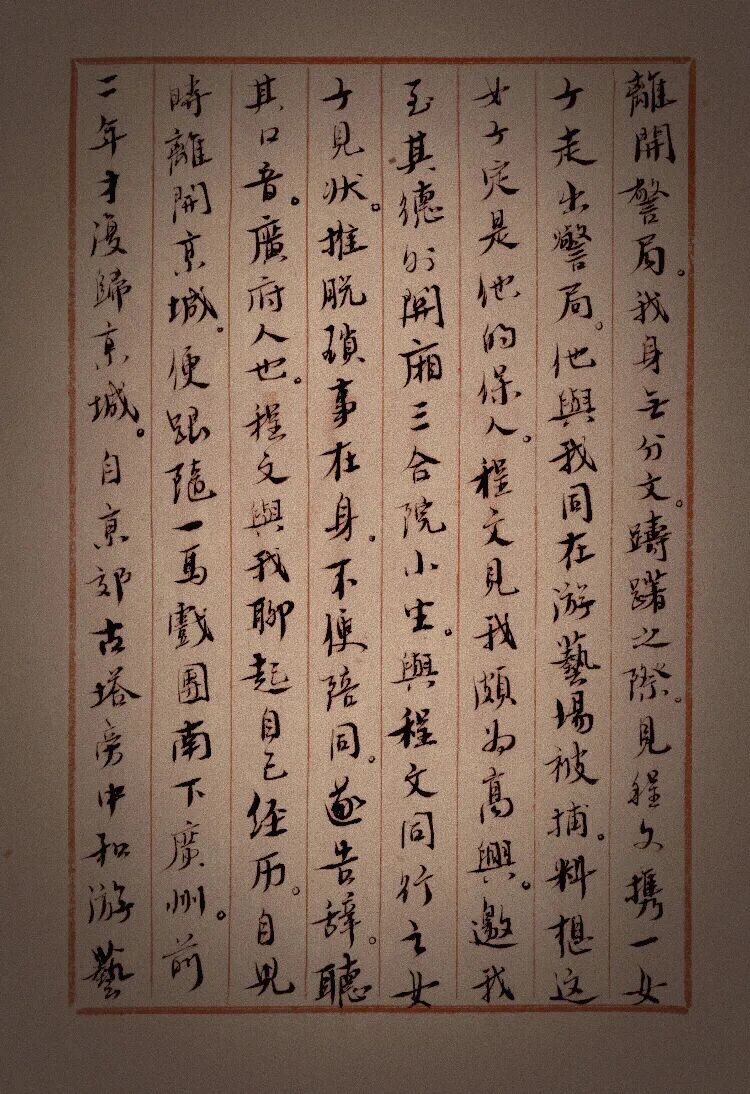 離開警局。我身无分文。躊躇之際。見程文攜一女
子走出警局。他與我同在游藝場被捕。料想这
女子定是他的保人。程文見我頗为高興。邀我
至其德外關廂三合院小坐。與程文同行之女
子見状。推脱瑣事在身。不便陪同。遂告辞。聽
其口音。廣府人也。程文與我聊起自己经历。自児
時離開京城。便跟隨一馬戲團南下廣州。前
二年才復歸京城。自京郊古塔旁中和游藝